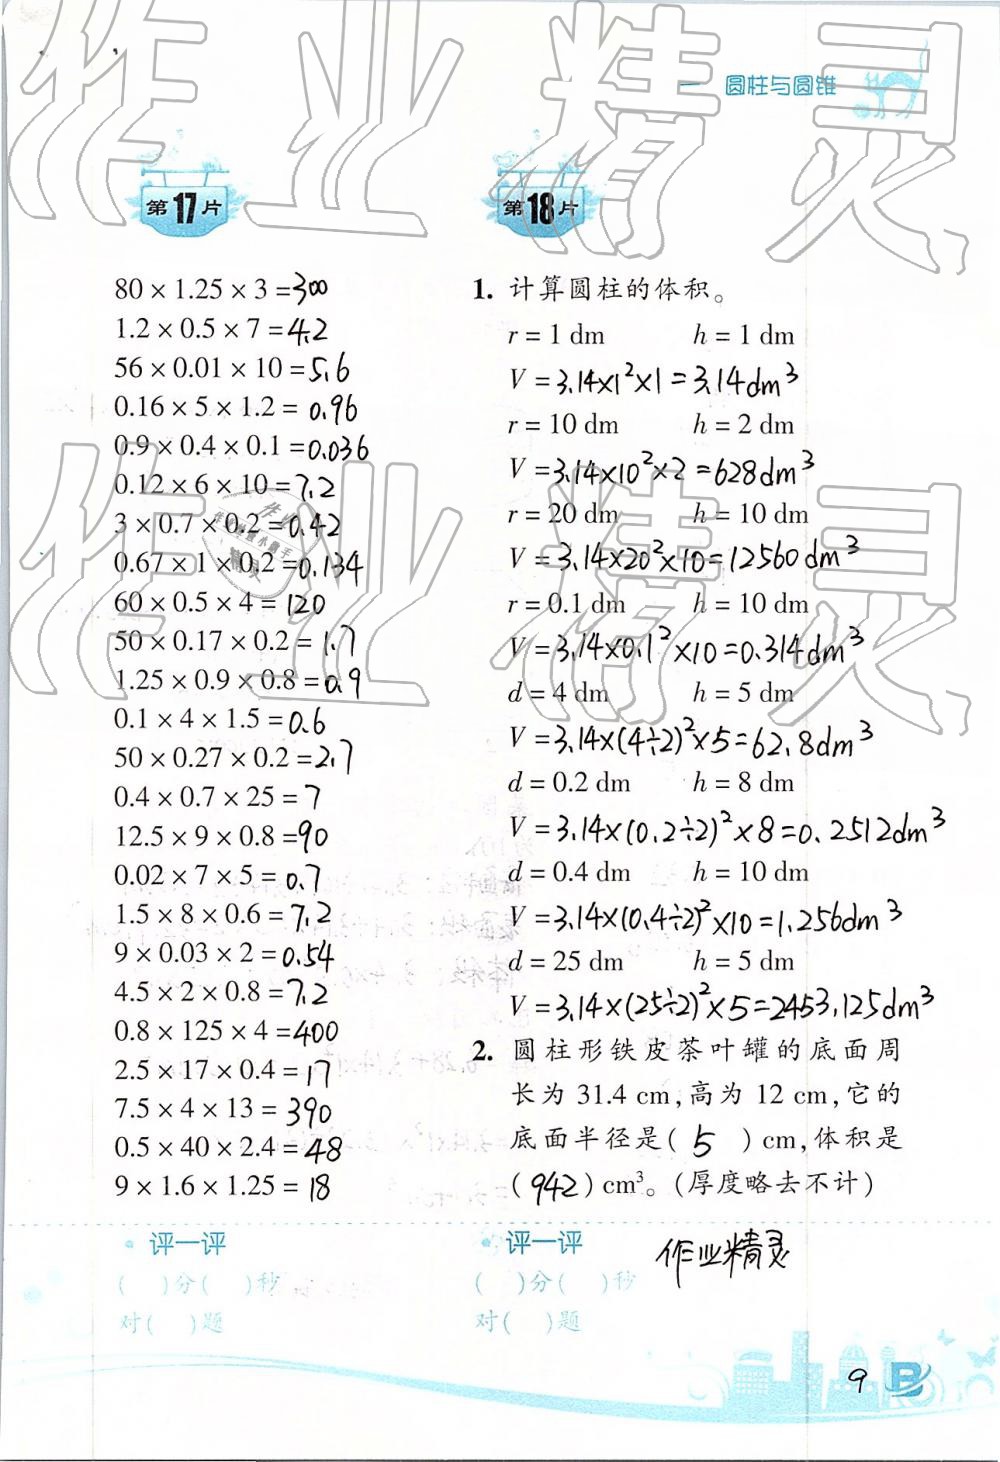 一 圆柱与圆锥
第17片
80 × 1.25 × 3 = 300
1.2 × 0.5 × 7 = 4.2
56 × 0.01 × 10 = 5.6
0.16 × 5 × 1.2 = 0.96
0.9 × 0.4 × 0.1 = 0.036
0.12 × 6 × 10 = 7.2
3 × 0.7 × 0.2 = 0.42
0.67 × 1 × 0.2 = 0.134
60 × 0.5 × 4 = 120
50 × 0.17 × 0.2 = 1.7
1.25 × 0.9 × 0.8 = 0.9
0.1 × 4 × 1.5 = 0.6
50 × 0.27 × 0.2 = 2.7
0.4 × 0.7 × 25 = 7
12.5 × 9 × 0.8 = 90
0.02 × 7 × 5 = 0.7
1.5 × 8 × 0.6 = 7.2
9 × 0.03 × 2 = 0.54
4.5 × 2 × 0.8 = 7.2
0.8 × 125 × 4 = 400
2.5 × 17 × 0.4 = 17
7.5 × 4 × 13 = 390
0.5 × 40 × 2.4 = 48
9 × 1.6 × 1.25 = 18
评一评
( )分( )秒
对( )题
第18片
1. 计算圆柱的体积。
r = 1 dm h = 1 dm
V = 3.14×1²×1 = 3.14dm³
r = 10 dm h = 2 dm
V = 3.14×10²×2 = 628dm³
r = 20 dm h = 10 dm
V = 3.14×20²×10 = 12560dm³
r = 0.1 dm h = 10 dm
V = 3.14×0.1²×10 = 0.314dm³
d = 4 dm h = 5 dm
V = 3.14×(4÷2)²×5 = 62.8dm³
d = 0.2 dm h = 8 dm
V = 3.14×(0.2÷2)²×8 = 0.2512dm³
d = 0.4 dm h = 10 dm
V = 3.14×(0.4÷2)²×10 = 1.256dm³
d = 25 dm h = 5 dm
V = 3.14×(25÷2)²×5 = 2453.125dm³
2. 圆柱形铁皮茶叶罐的底面周
长为 31.4 cm,高为 12 cm,它的
底面半径是( 5 ) cm,体积是
( 942 ) cm³。(厚度略去不计)
评一评
( )分( )秒
对( )题
作业精灵
9 B
作业精灵
作业精灵